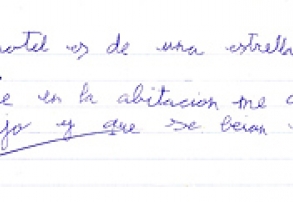 hotel es de una estrella
e en la abitacion me
y que se beian